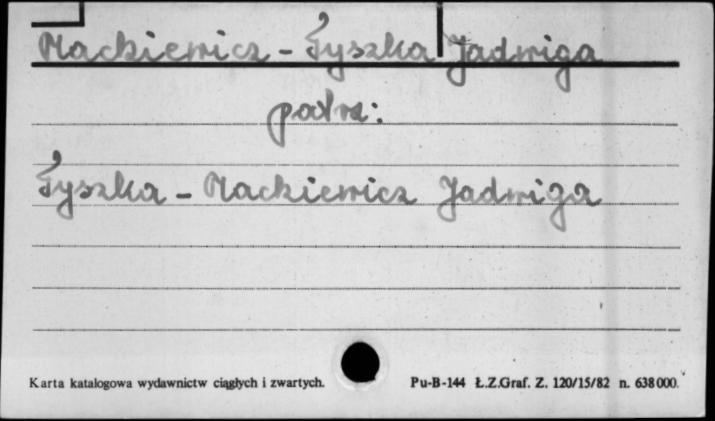 Mackiewicz - Tyszka Jadwiga
patrz:
Tyszka - Mackiewicz Jadwiga
Karta katalogowa wydawnictw ciągłych i zwartych. Pu-B-144 Ł.Z.Graf. Z. 120/15/82 n. 638000.